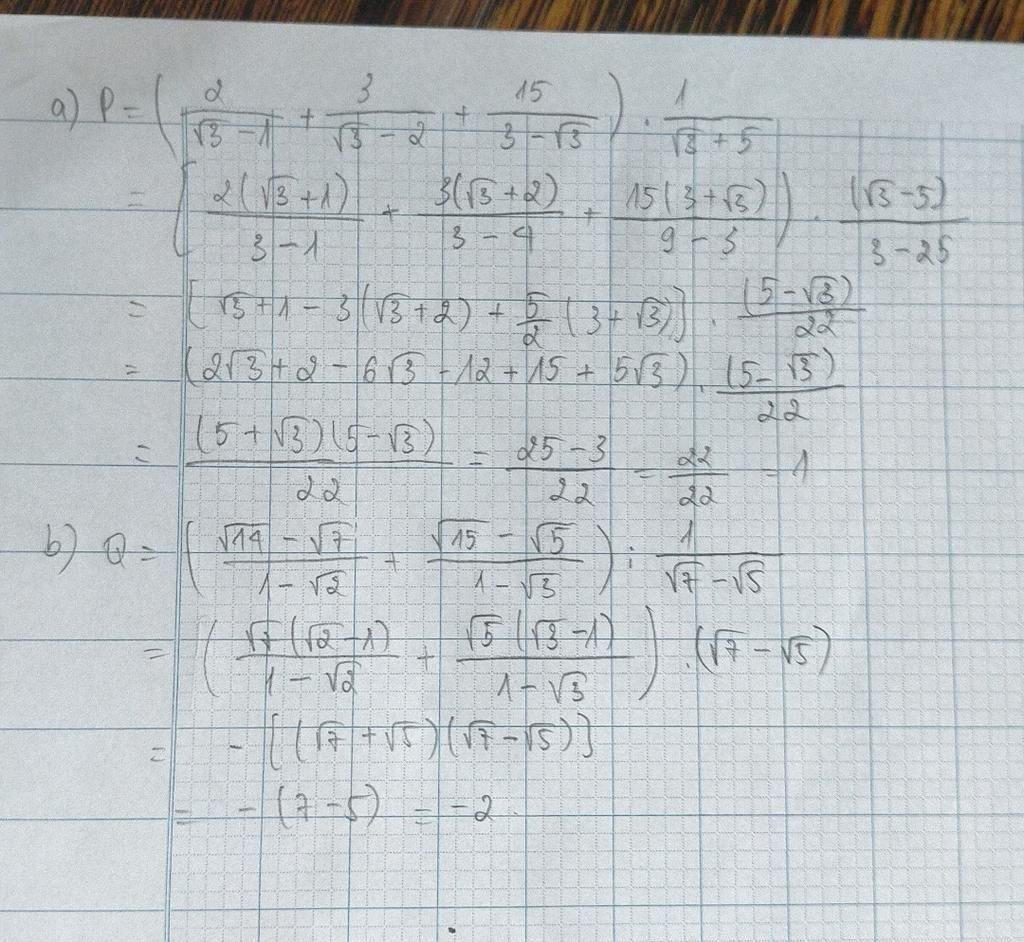 a) P = ( 2/(√3 - 1) + 3/(√3 - 2) + 15/(3 - √3) ) . 1/(√3 + 5)
= [ 2(√3 + 1)/(3 - 1) + 3(√3 + 2)/(3 - 4) + 15(3 + √3)/(9 - 3) ) . (√3 - 5)/(3 - 25)
= [ √3 + 1 - 3(√3 + 2) + 5/2 (3 + √3) ] . (5 - √3)/22
= (2√3 + 2 - 6√3 - 12 + 15 + 5√3) . (5 - √3)/22
= (5 + √3)(5 - √3)/22 = (25 - 3)/22 = 22/22 = 1
b) Q = ( (√14 - √7)/(1 - √2) + (√15 - √5)/(1 - √3) ) : 1/(√7 - √5)
= ( √7(√2 - 1)/(1 - √2) + √5(√3 - 1)/(1 - √3) ) . (√7 - √5)
= - [(√7 + √5)(√7 - √5)]
= - (7 - 5) = -2.